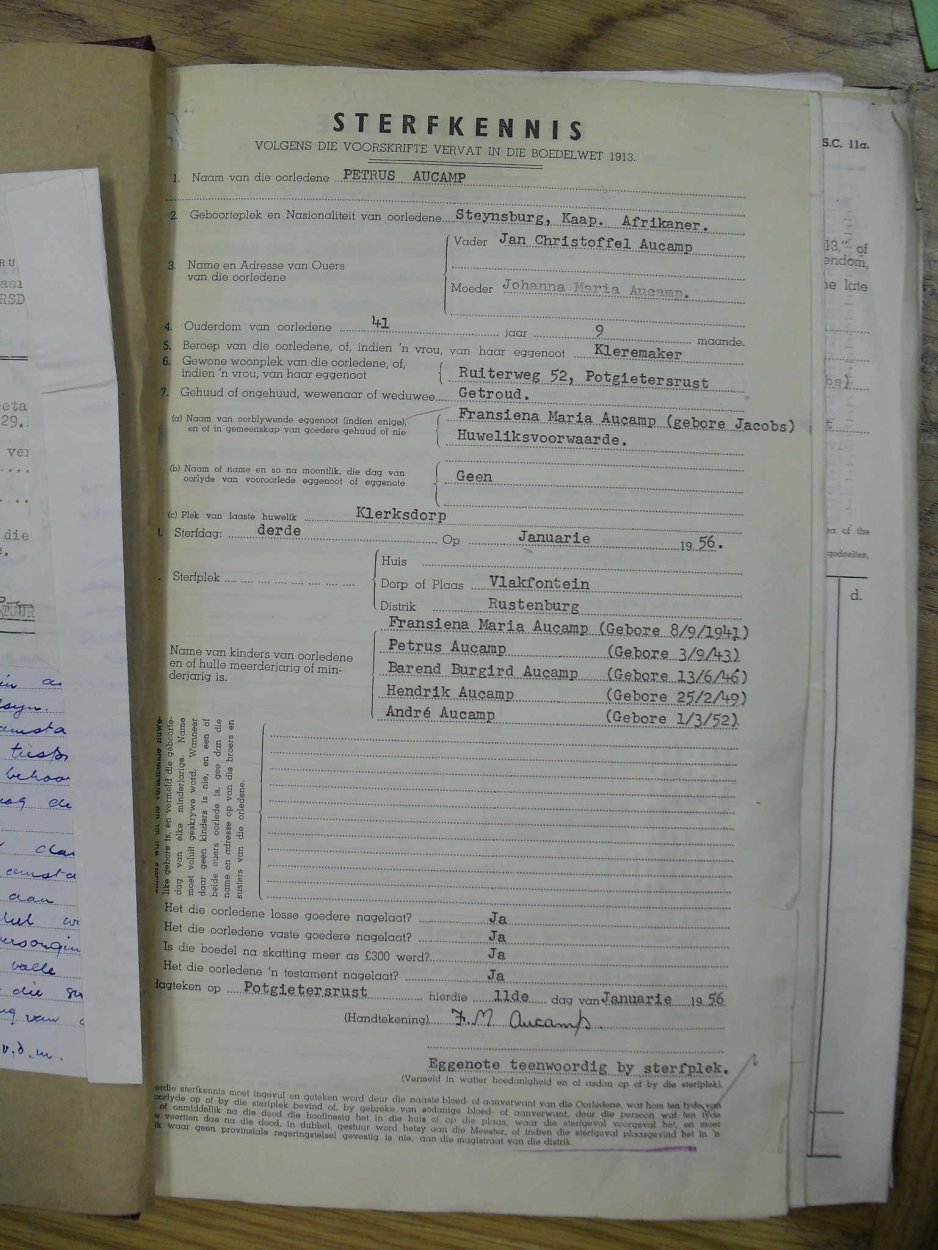 STERFKENNIS
VOLGENS DIE VOORSKRIFTE VERVAT IN DIE BOEDELWET 1913.
1. Naam van die oorledene PETRUS AUCAMP
2. Geboorteplek en Nasionaliteit van oorledene Steynsburg, Kaap. Afrikaner.
3. Name en Adresse van Ouers
van die oorledene
Vader Jan Christoffel Aucamp
Moeder Johanna Maria Aucamp.
4. Ouderdom van oorledene 41 jaar 9 maande.
5. Beroep van die oorledene, of, indien 'n vrou, van haar eggenoot Kleremaker
6. Gewone woonplek van die oorledene, of,
indien 'n vrou, van haar eggenoot
Ruiterweg 52, Potgietersrust
7. Gehuud of ongehuud, wewenaar of weduwee Getroud.
(a) Naam van oorblywende eggenoot (indien enige),
en of in gemeenskap van goedere gehuud of nie
Fransiena Maria Aucamp (gebore Jacobs)
Huweliksvoorwaarde.
(b) Naam of name en so na moontlik, die dag van
oorlyde van vooroorlede eggenoot of eggenote
Geen
(c) Plek van laaste huwelik Klerksdorp
Sterfdag: derde Op Januarie 1956.
Sterfplek
Huis
Dorp of Plaas Vlakfontein
Distrik Rustenburg
Name van kinders van oorledene
en of hulle meerderjarig of min-
derjarig is.
Fransiena Maria Aucamp (Gebore 8/9/1941)
Petrus Aucamp (Gebore 3/9/43)
Barend Burgird Aucamp (Gebore 13/6/46)
Hendrik Aucamp (Gebore 25/2/49)
André Aucamp (Gebore 1/3/52)
like gebore is, en vermeld die geboorte-
dag van elke minderjarige. Name
moet voluit geskrywe word. Wanneer
daar geen kinders is nie, en een of
beide ouers oorlede is, gee dan die
name en adresse op van die broers en
susters van die orledene.
Het die oorledene losse goedere nagelaat? Ja
Het die oorledene vaste goedere nagelaat? Ja
Is die boedel na skatting meer as £300 werd? Ja
Het die oorledene 'n testament nagelaat? Ja
dagteken op Potgietersrust hierdie 11de dag van Januarie 1956
(Handtekening) F.M Aucamp.
Eggenote teenwoordig by sterfplek.
(Vermeld in watter hoedanigheid en of asdan op of by die sterfplek).
erdie sterfkennis moet ingevul en geteken word deur die naaste bloed- of aanverwant van die Oorledene, wat hom ten tyde van
oorlyde op of by die sterfplek bevind of, by gebreke van sodanige bloed- of aanverwant, deur die persoon wat ten tyde
of onmiddellik na die dood die hooftoesig het in die huis of op die plaas, waar die sterfgeval voorgeval het, en moet
veertien dae na die dood, in dubbel, gestuur word hetsy aan die Meester, of indien die sterfgeval plaasgevind het in 'n
ik waar geen provinsiale regeringstelsel gevestig is nie, aan die magistraat van die distrik.
S.C. 11a.
13," of
endom,
he late
ea of the
gedeeltes,
d.
RU
aal
RSD
eta
29.
ver
die
amsta
tiesk
behoo
amsta
aan
volle
die
van
v.d.m.